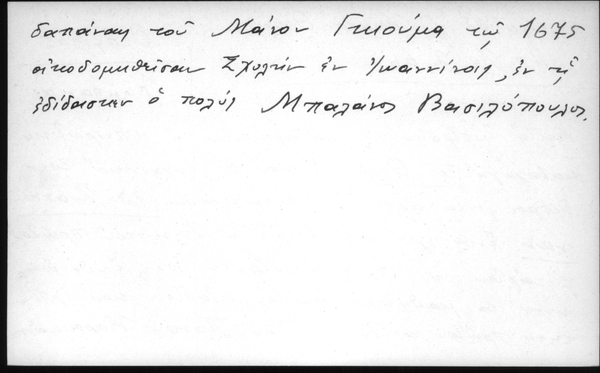 δαπάναις τοῦ Μάνου Γκιούμα τῷ 1675
οἰκοδομηθεῖσαν Σχολήν ἐν Ἰωαννίνοις, ἐν τῇ
ἐδίδασκεν ὁ πολύς Μπαλάνος Βασιλόπουλος.